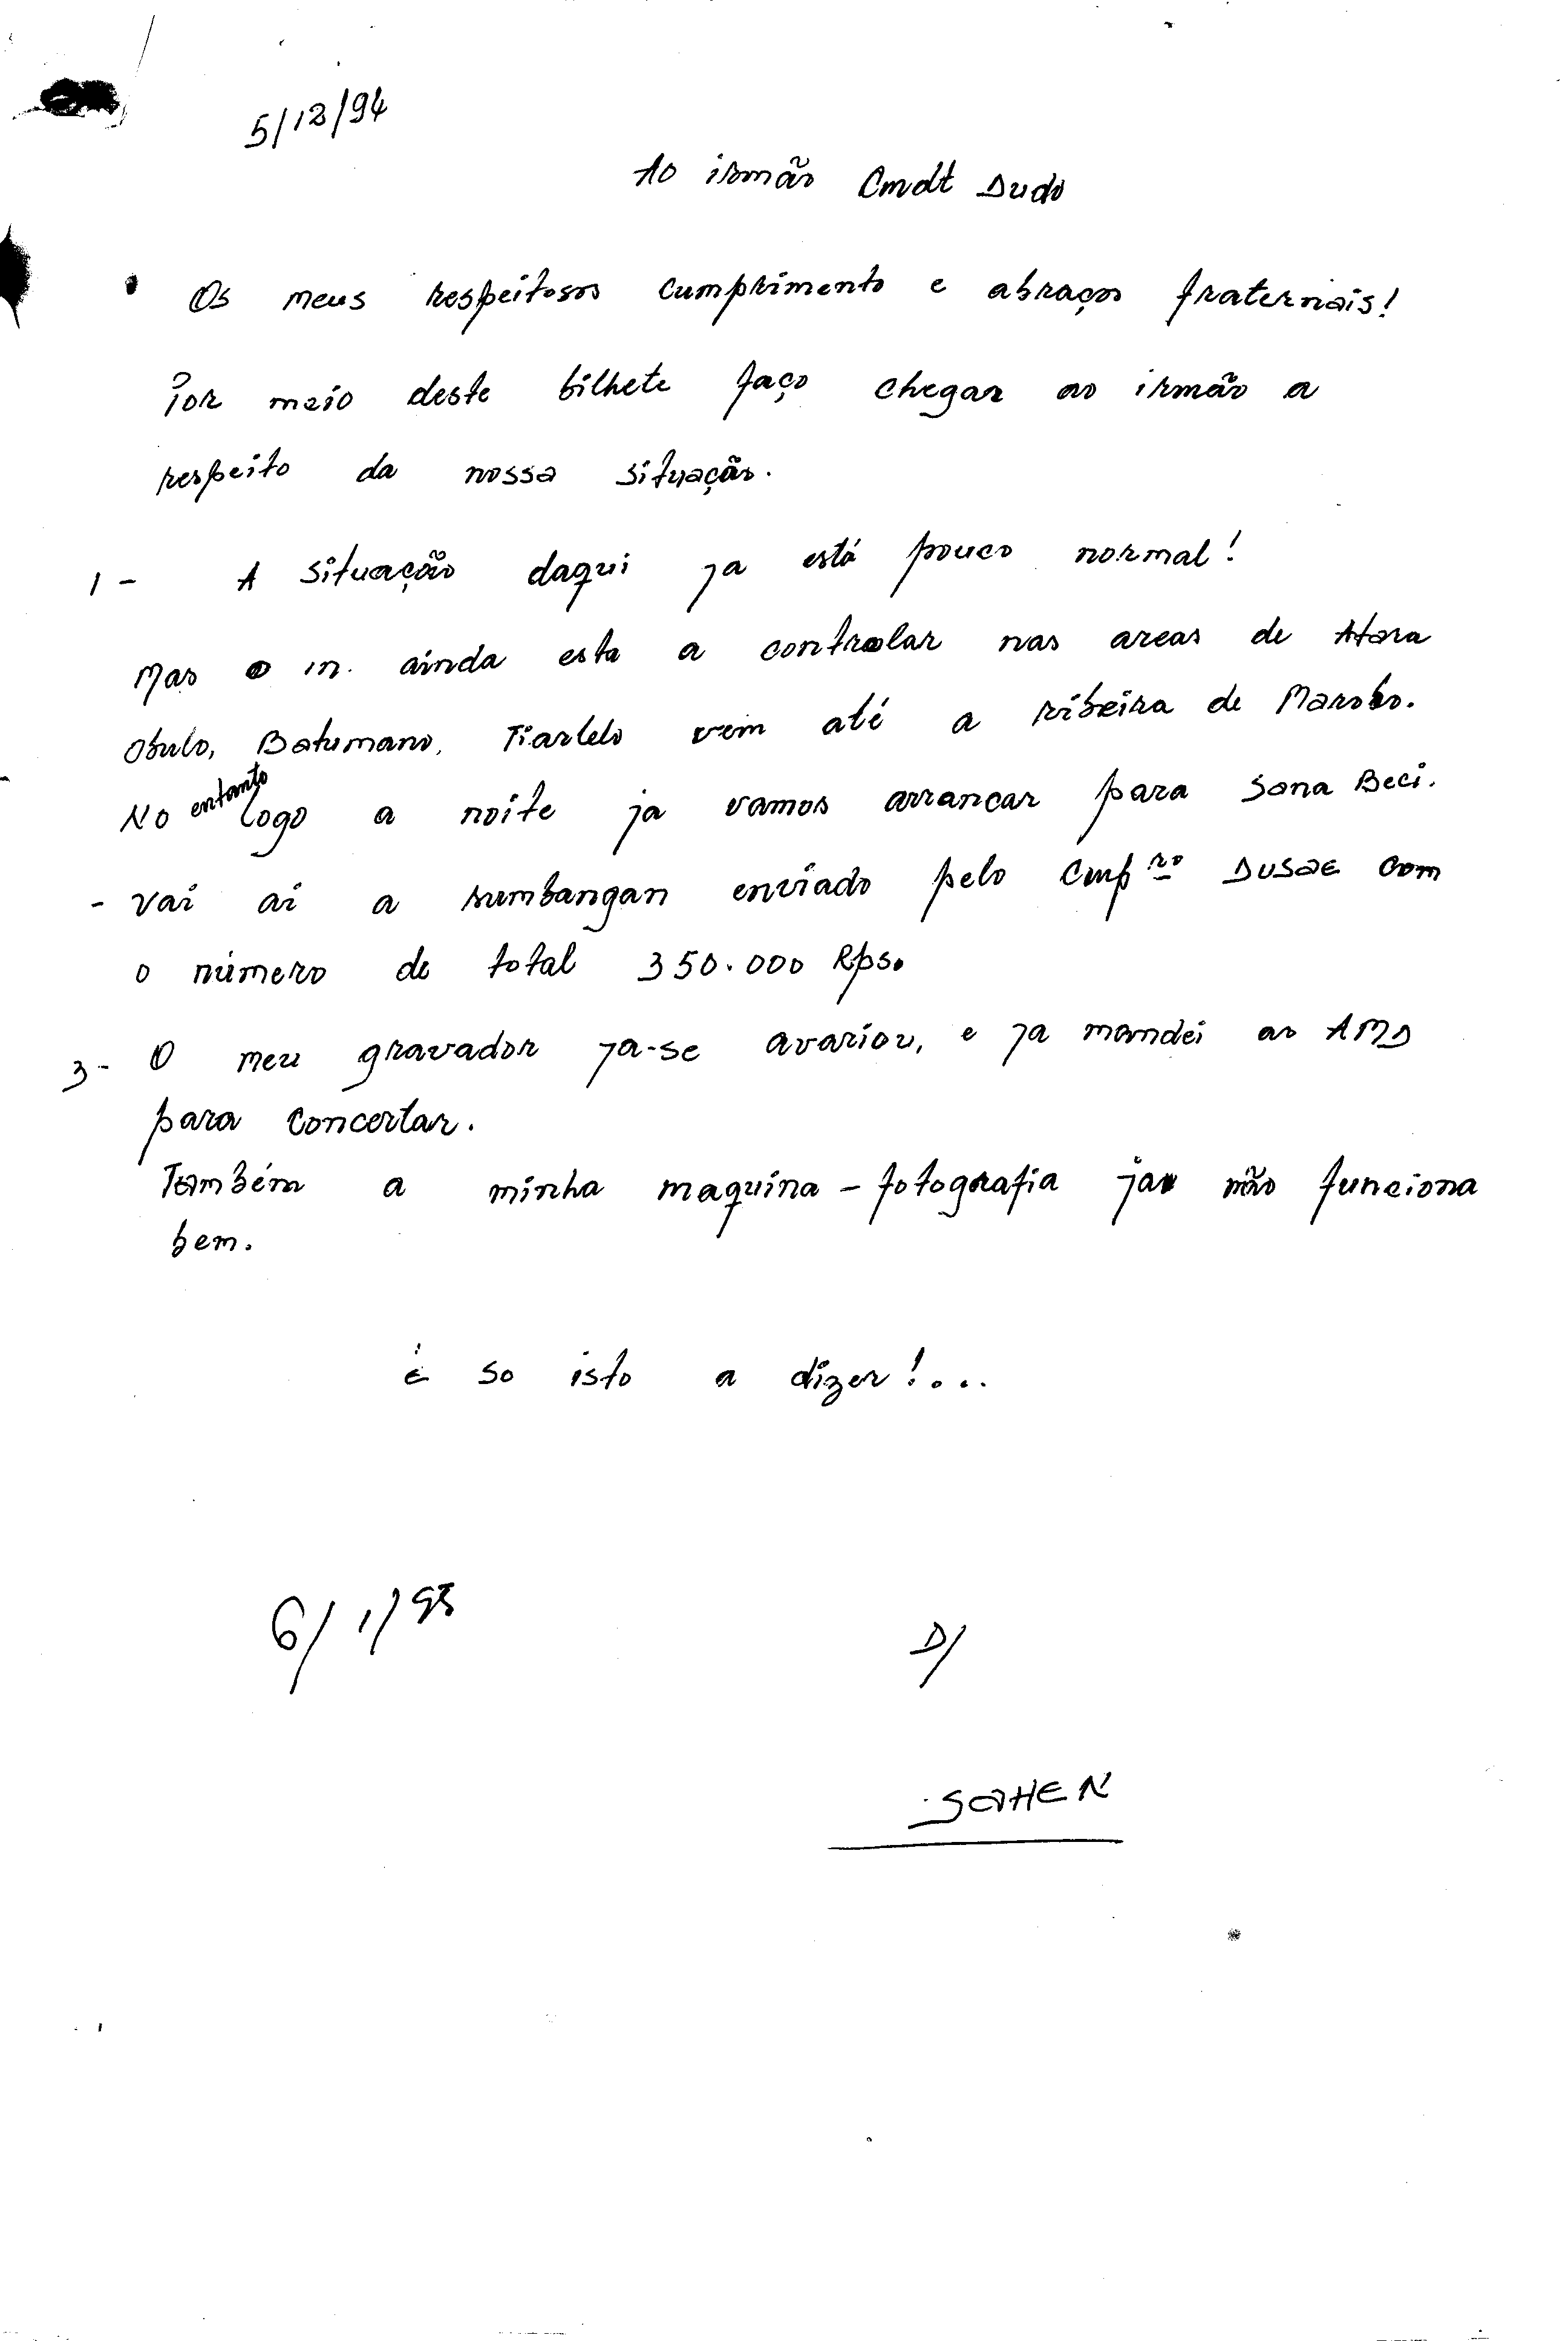 5/12/94
Ao irmão Cmdt Dudo
Os meus respeitosos cumprimento e abraços fraternais!
Por meio deste bilhete faço chegar ao irmão a
respeito da nossa situação.
1 - A situação daqui ja está pouco normal!
Mas o in. ainda esta a controlar nas areas de Atara
Obulo, Batumano, Tiarlelo vem até a ribeira de Marobo.
No entanto logo a noite ja vamos arrancar para Sana Beci.
- vai ai a sumbangan enviado pelo Cmpro DUSAE com
o número de total 350.000 Rps.
3 - O meu gravador ja-se avariou, e ja mandei ao AMD
para concertar.
Também a minha maquina - fotografia ja não funciona
bem.
É so isto a dizer!...
6/1/95
D/
SAHEN